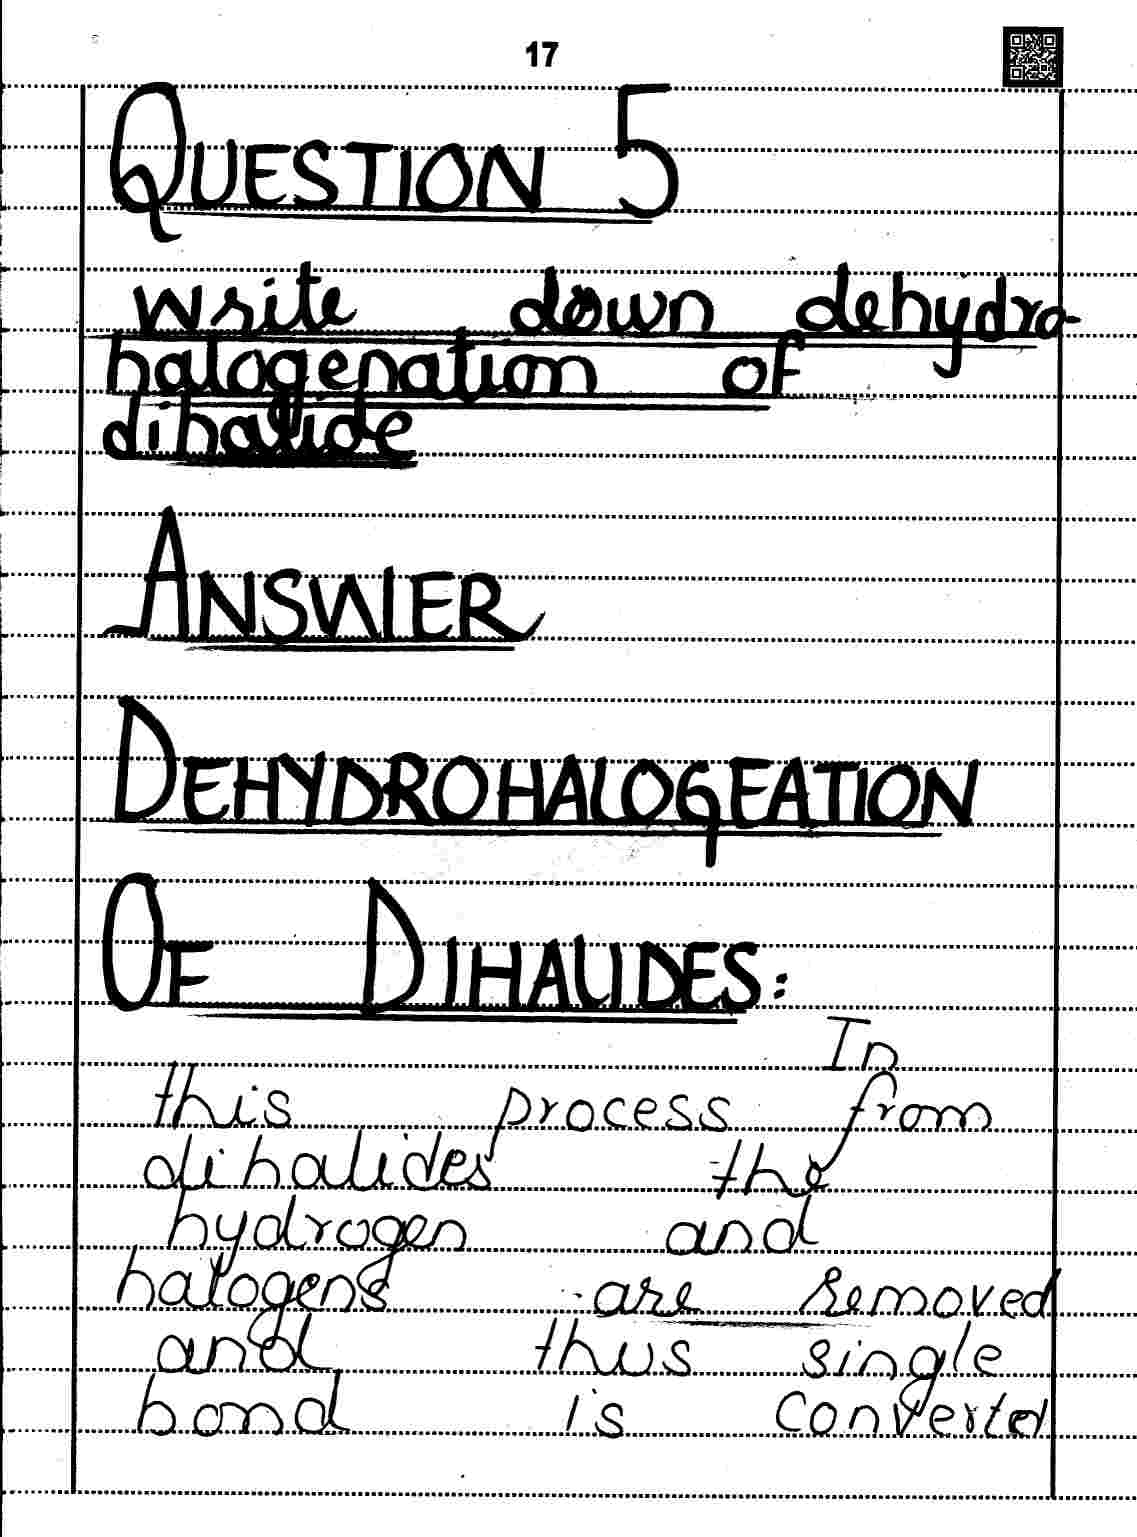 17
QUESTION 5
write down dehydro-
halogenation of
dihalide
ANSWER
DEHYDROHALOGEATION
OF DIHALIDES:
In
this process from
dihalides the
hydrogen and
halogens are removed
and thus single
bond is converted